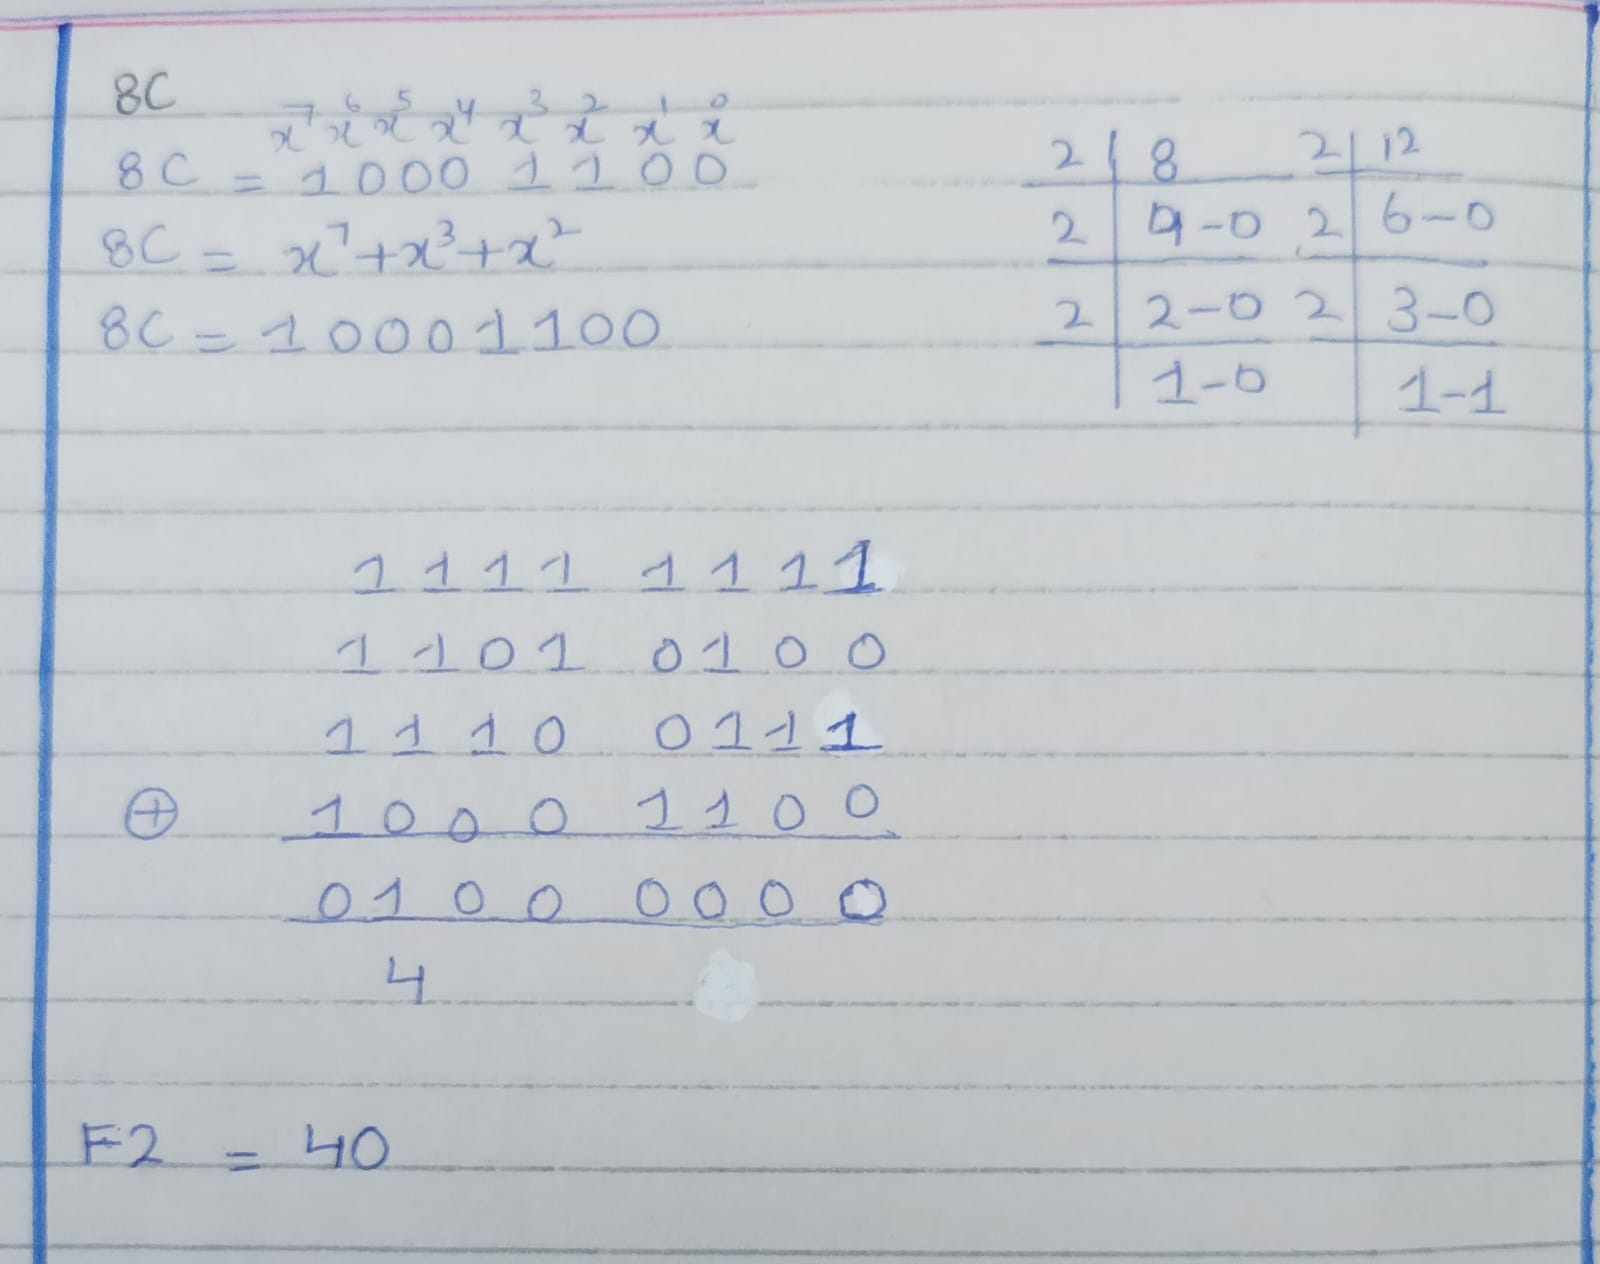 8C
x⁷ x⁶ x⁵ x⁴ x³ x² x¹ x⁰
8C = 1000 1100
8C = x⁷+x³+x²
8C = 10001100
2 8
2 4-0
2 2-0
1-0
2 12
2 6-0
2 3-0
1-1
1 1 1 1 1 1 1 1
1 1 0 1 0 1 0 0
1 1 1 0 0 1 1 1
⊕ 1 0 0 0 1 1 0 0
0 1 0 0 0 0 0 0
4
F2 = 40